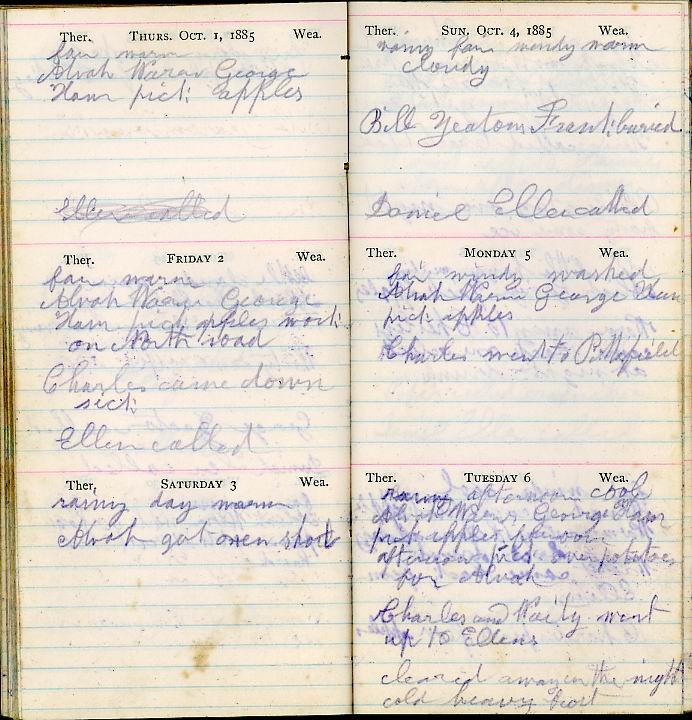 Ther. THURS. OCT. 1, 1885 Wea.
fair warm
Alvah Waren George
Ham pick apples
Ellen called
Ther. FRIDAY 2 Wea.
fair warm
Alvah Waren George
Ham pick apples work
on North road
Charles came down
sick
Ellen called
Ther. SATURDAY 3 Wea.
rainy day warm
Alvah got oxen shod
Ther. SUN. OCT. 4, 1885 Wea.
rainy fair windy warm
cloudy
Bill Yeatons Frank buried
Daniel Ellen called
Ther. MONDAY 5 Wea.
fair windy washed
Alvah Waren George Ham
pick apples
Charles went to Pittsfield
Ther. TUESDAY 6 Wea.
rainy afternoon cool
Alvah Waren George Ham
pick apples forenoon
afternoon over potatoes
for Alvah
Charles and went
up to Ellens
cleared away in the night
cold heavy frost